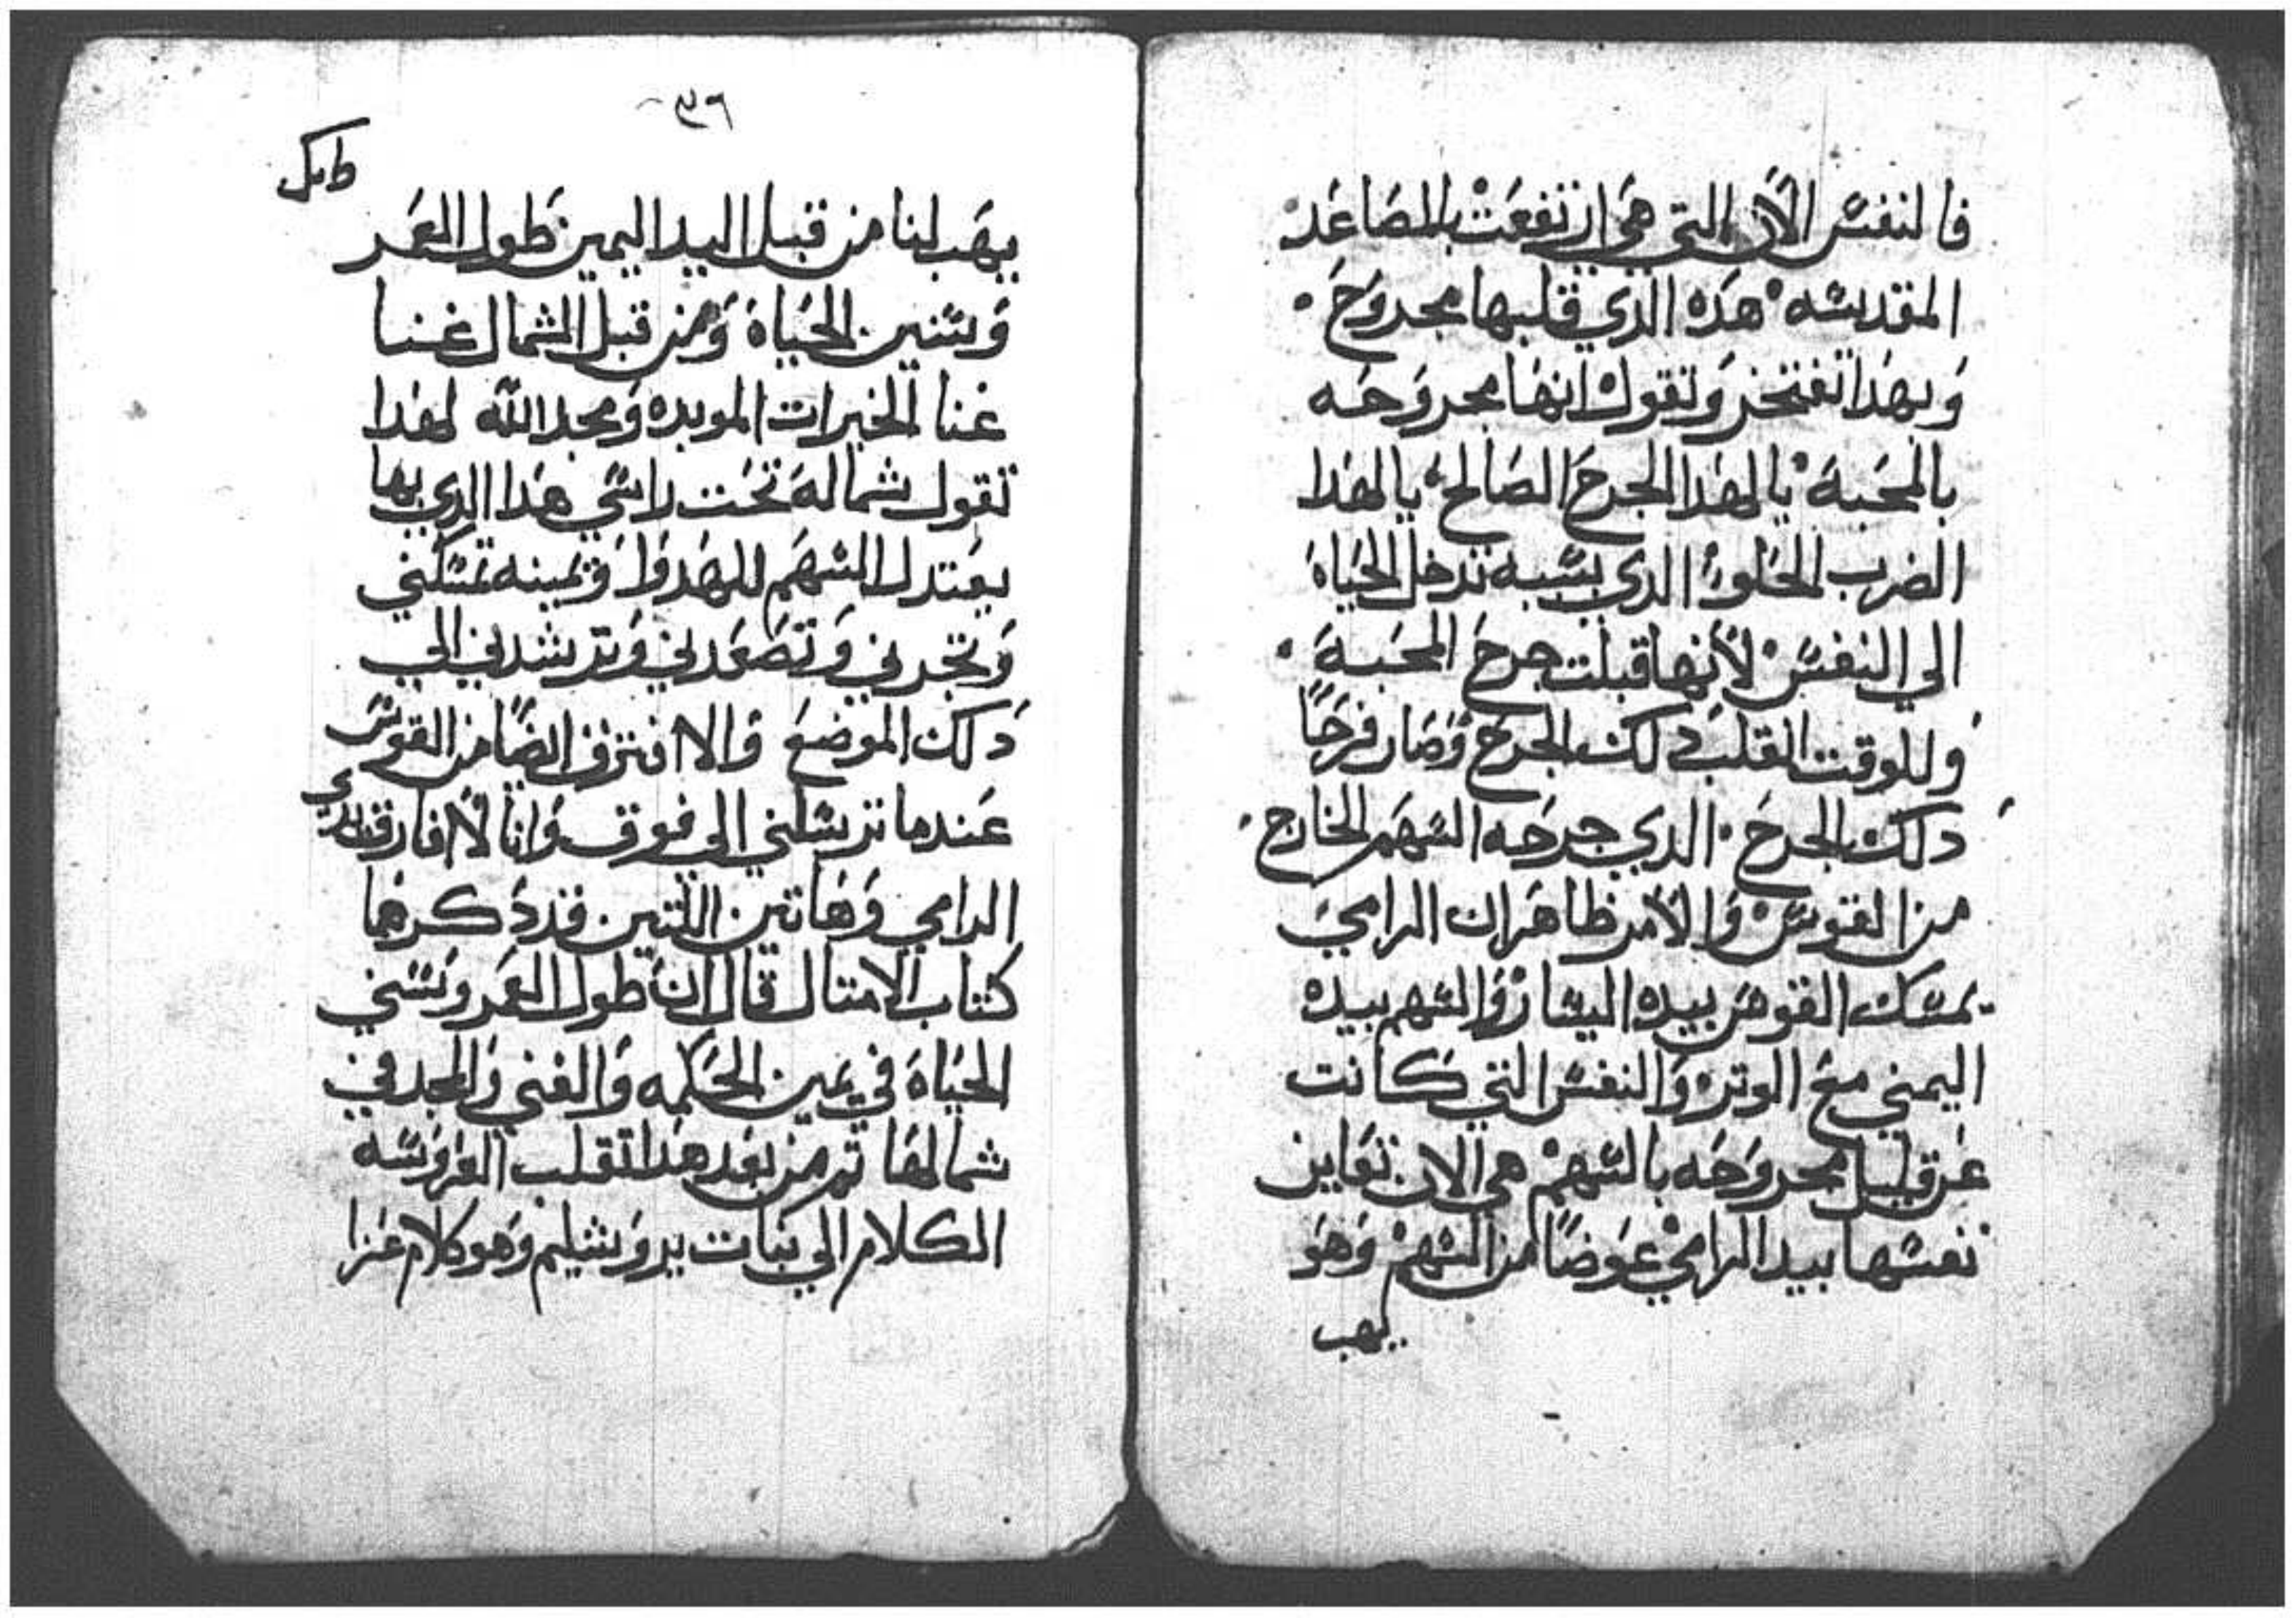 فالنفس الآن التي هي ارتفعت بالمصاعد
المقدسه هده الدي قلبها مجروح
وبهدا تفتخر وتقول انها مجروحه
بالمحبة يا لهدا الجرح الصالح يا لهدا
الضرب الحلو الدي بسببه تدخل الحياة
الي النفس لأنها قبلت جرح المحبة
وللوقت انقلب دلك الجرح وصار فرحًا
دلك الجرح الدي جرحه السهم الخارج
من القوس والأمر ظاهر ان الرامي
يمسك القوس بيده اليسار والسهم بيده
اليمني مع الوتر والنفس التي كانت
عن قليل مجروحه بالسهم هي الان تعاين
نفسها بيد الرامي عوضًا من السهم وهو
يهب
٣٦
يهب لنا من قبل اليد اليمين طول العمر
وسنين الحياة ومن قبل الشمال غنا
غنا الخيرات الموبده ومجد الله لهدا
تقول شماله تحت راسي هدا الدي بها
يعتدل السهم للهدوا ويمينه تمسكني
وتجرني وتصعدني وترشدني الي
دلك الموضع والا افترق ايضًا من القوس
عندما ترسلني الي فوق وانا لا افارق يدي
الرامي وهاتين اللتين قد دكرهما
كتاب الامتال قال ان طول العمر وسني
الحياة في يمين الحكمه والغني والمجد في
شمالها تم من بعد هدا تقلب العروسه
الكلام الي بنات يروشليم وهو كلام عزا